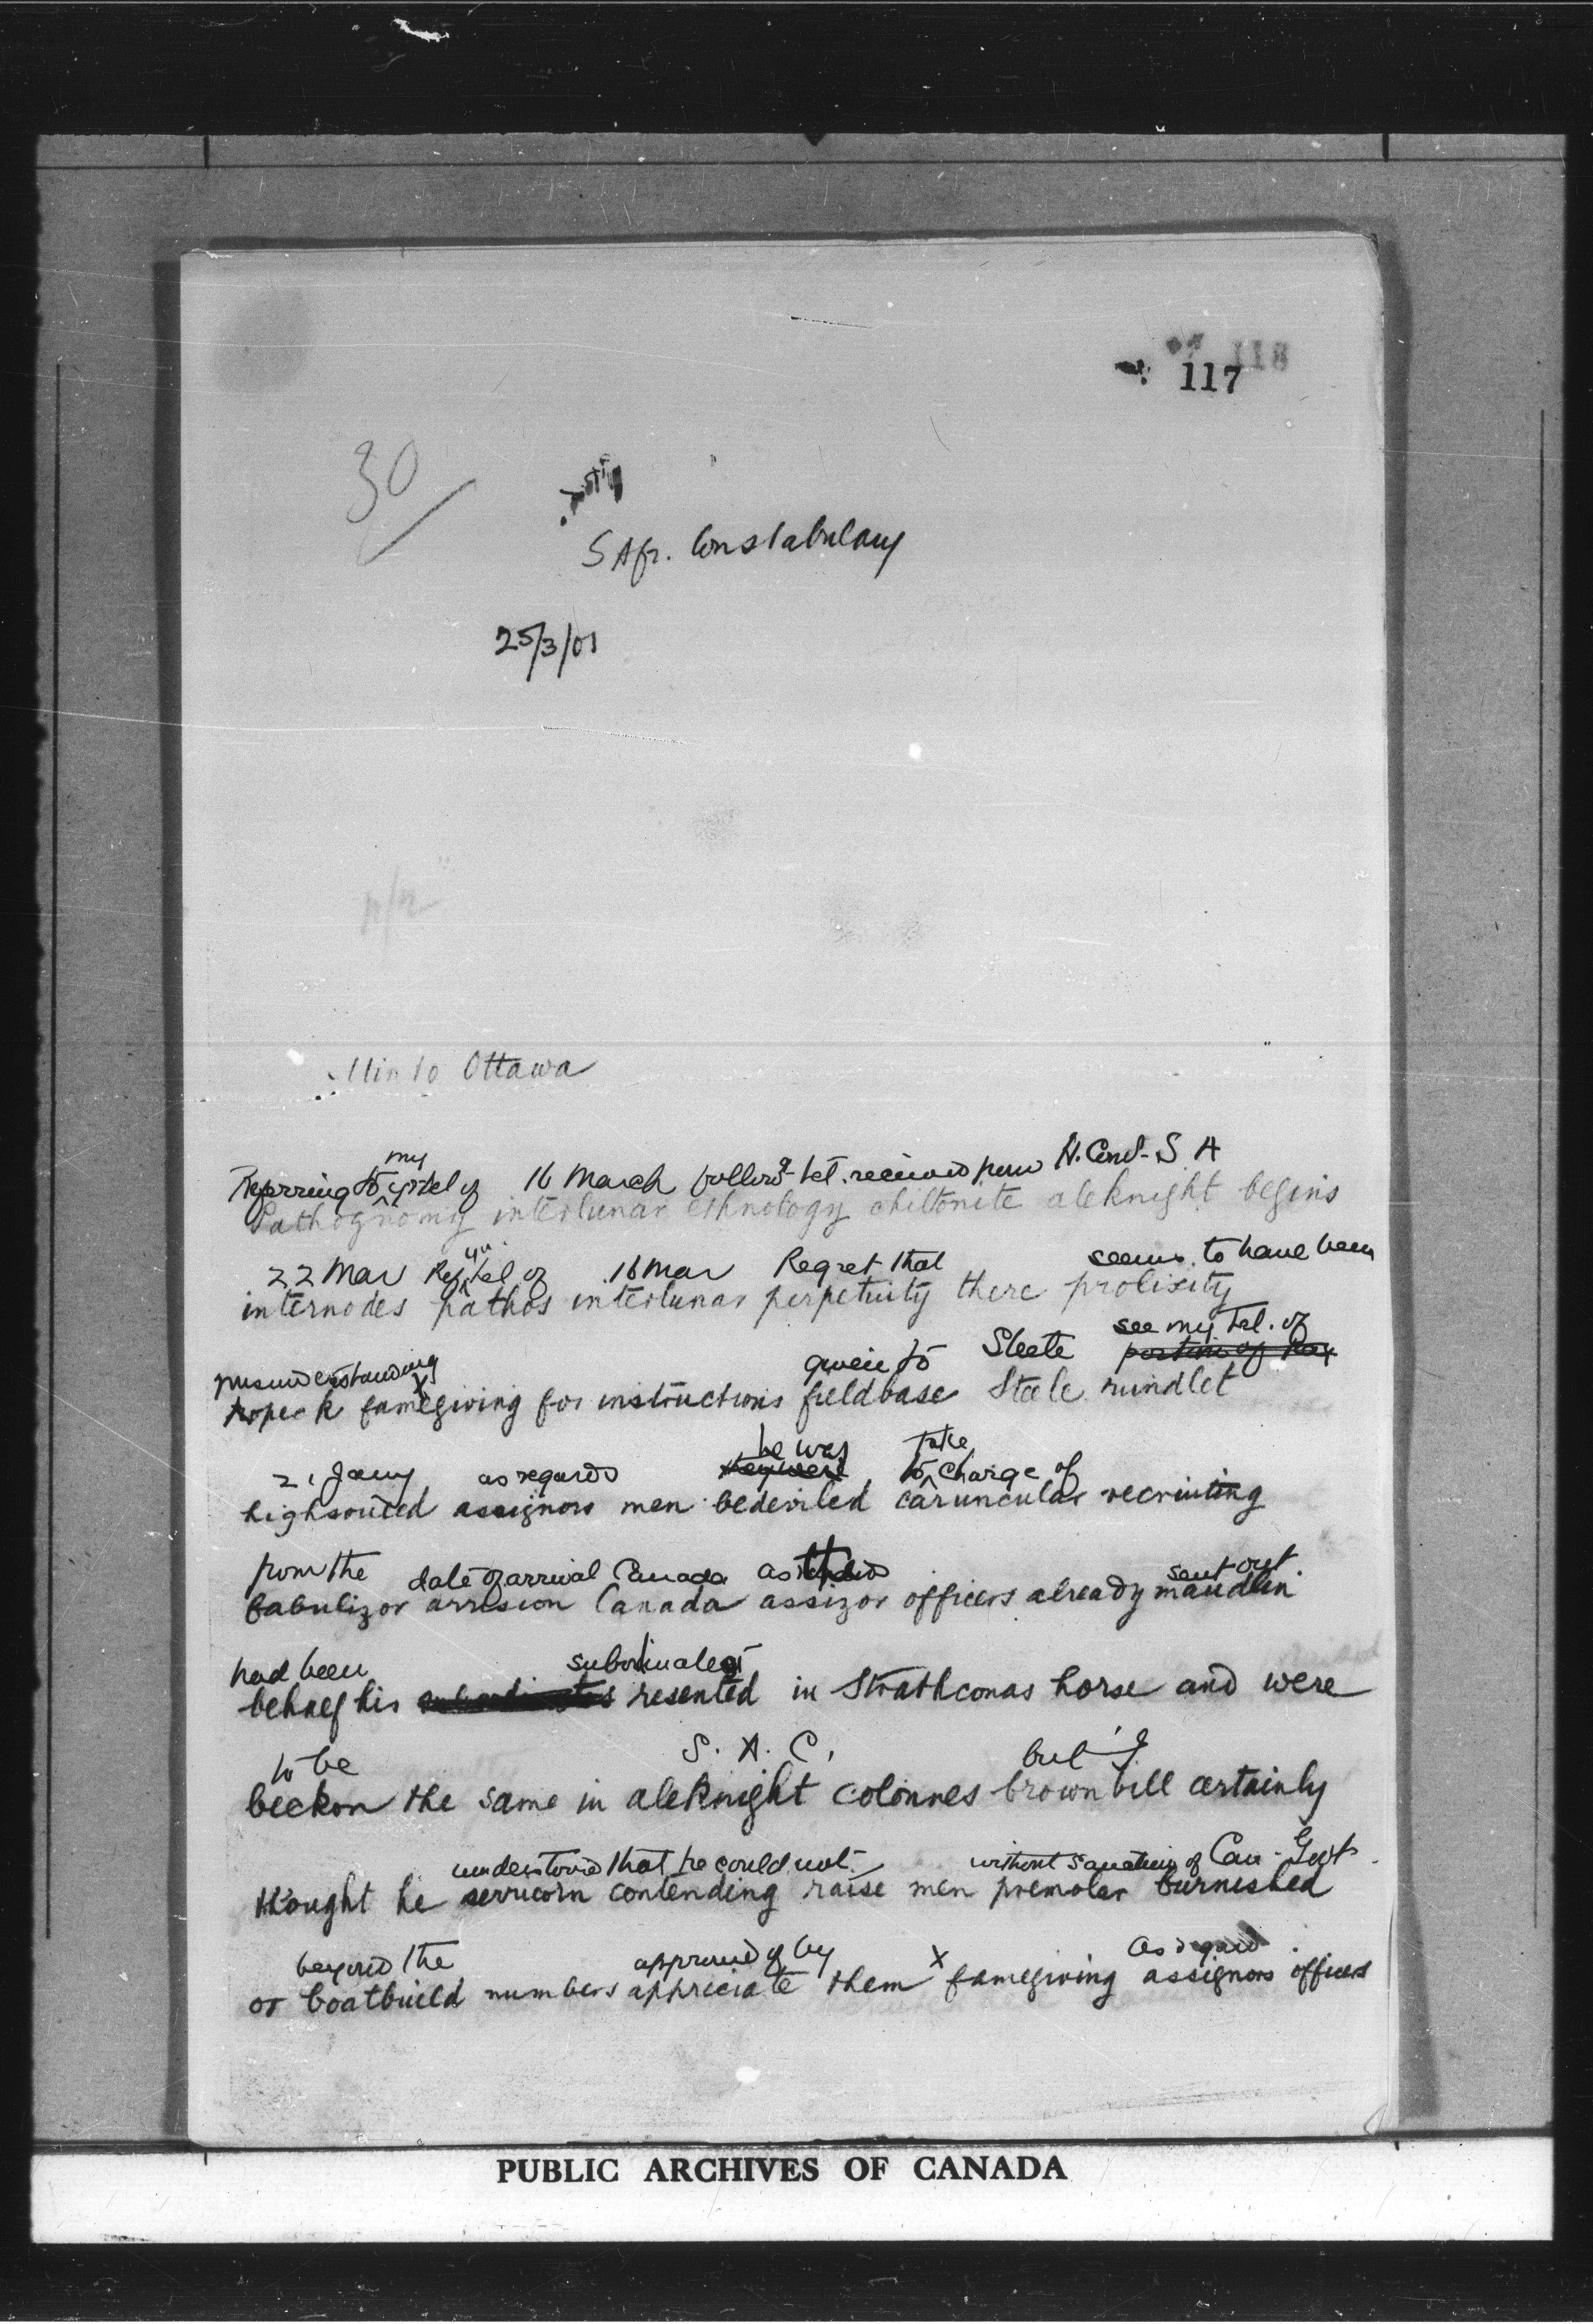 118
117
30
S Afr. Constabulary
25/3/01
Minto Ottawa
my
Referring to tel of 16 March follow.g tel. received from H. Comr. S A
Pathognomy interlunar ethnology chiltonite aleknight begins
yr
22 Mar Ref tel of 16 Mar Regret that seems to have been
internodes pathos interlunar perpetuity there prolixity
see my tel. of
misunderstanding x given to Steele portion of
ropek famegiving for instructions fieldbase Steele rundlet
he was take
21 Jany as regards they were to charge of
highsouled assignors men bedeviled caruncular recruiting
from the date of arrival Canada as sent out
babulizor arrision Canada assizor officers already maudlin
had been subordinates
behalf his subordinates resented in Strathconas horse and were
to be S. A. C. but I
beckon the same in aleknight colonnes brownbill certainly
understood that he could not without sanction of Can. Govt.
thought he serricorn contending raise men premolar burnished
beyond the approved of by x as regard
or boatbuild numbers appreciate them famegiving assignors officers
PUBLIC ARCHIVES OF CANADA